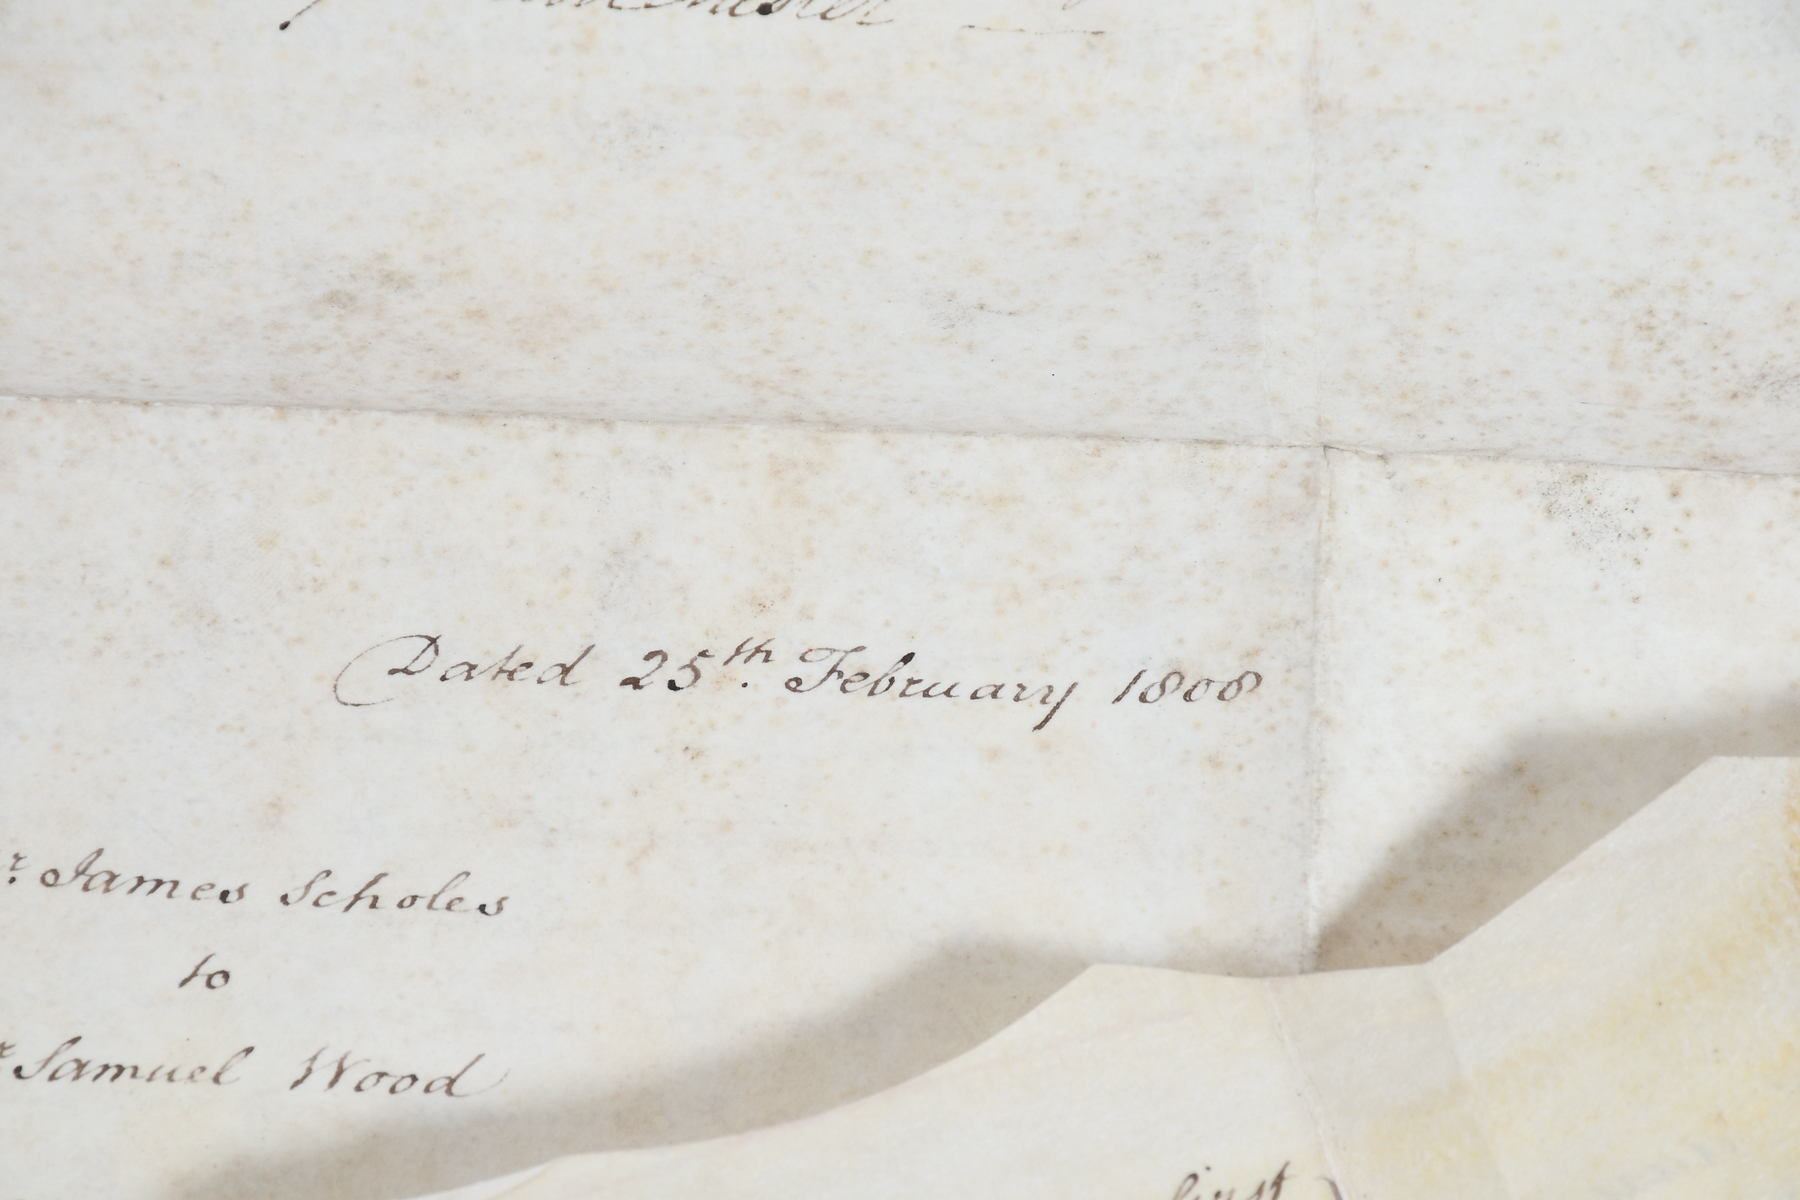 Dated 25th. February 1808
r. James Scholes
to
r Samuel Wood
first